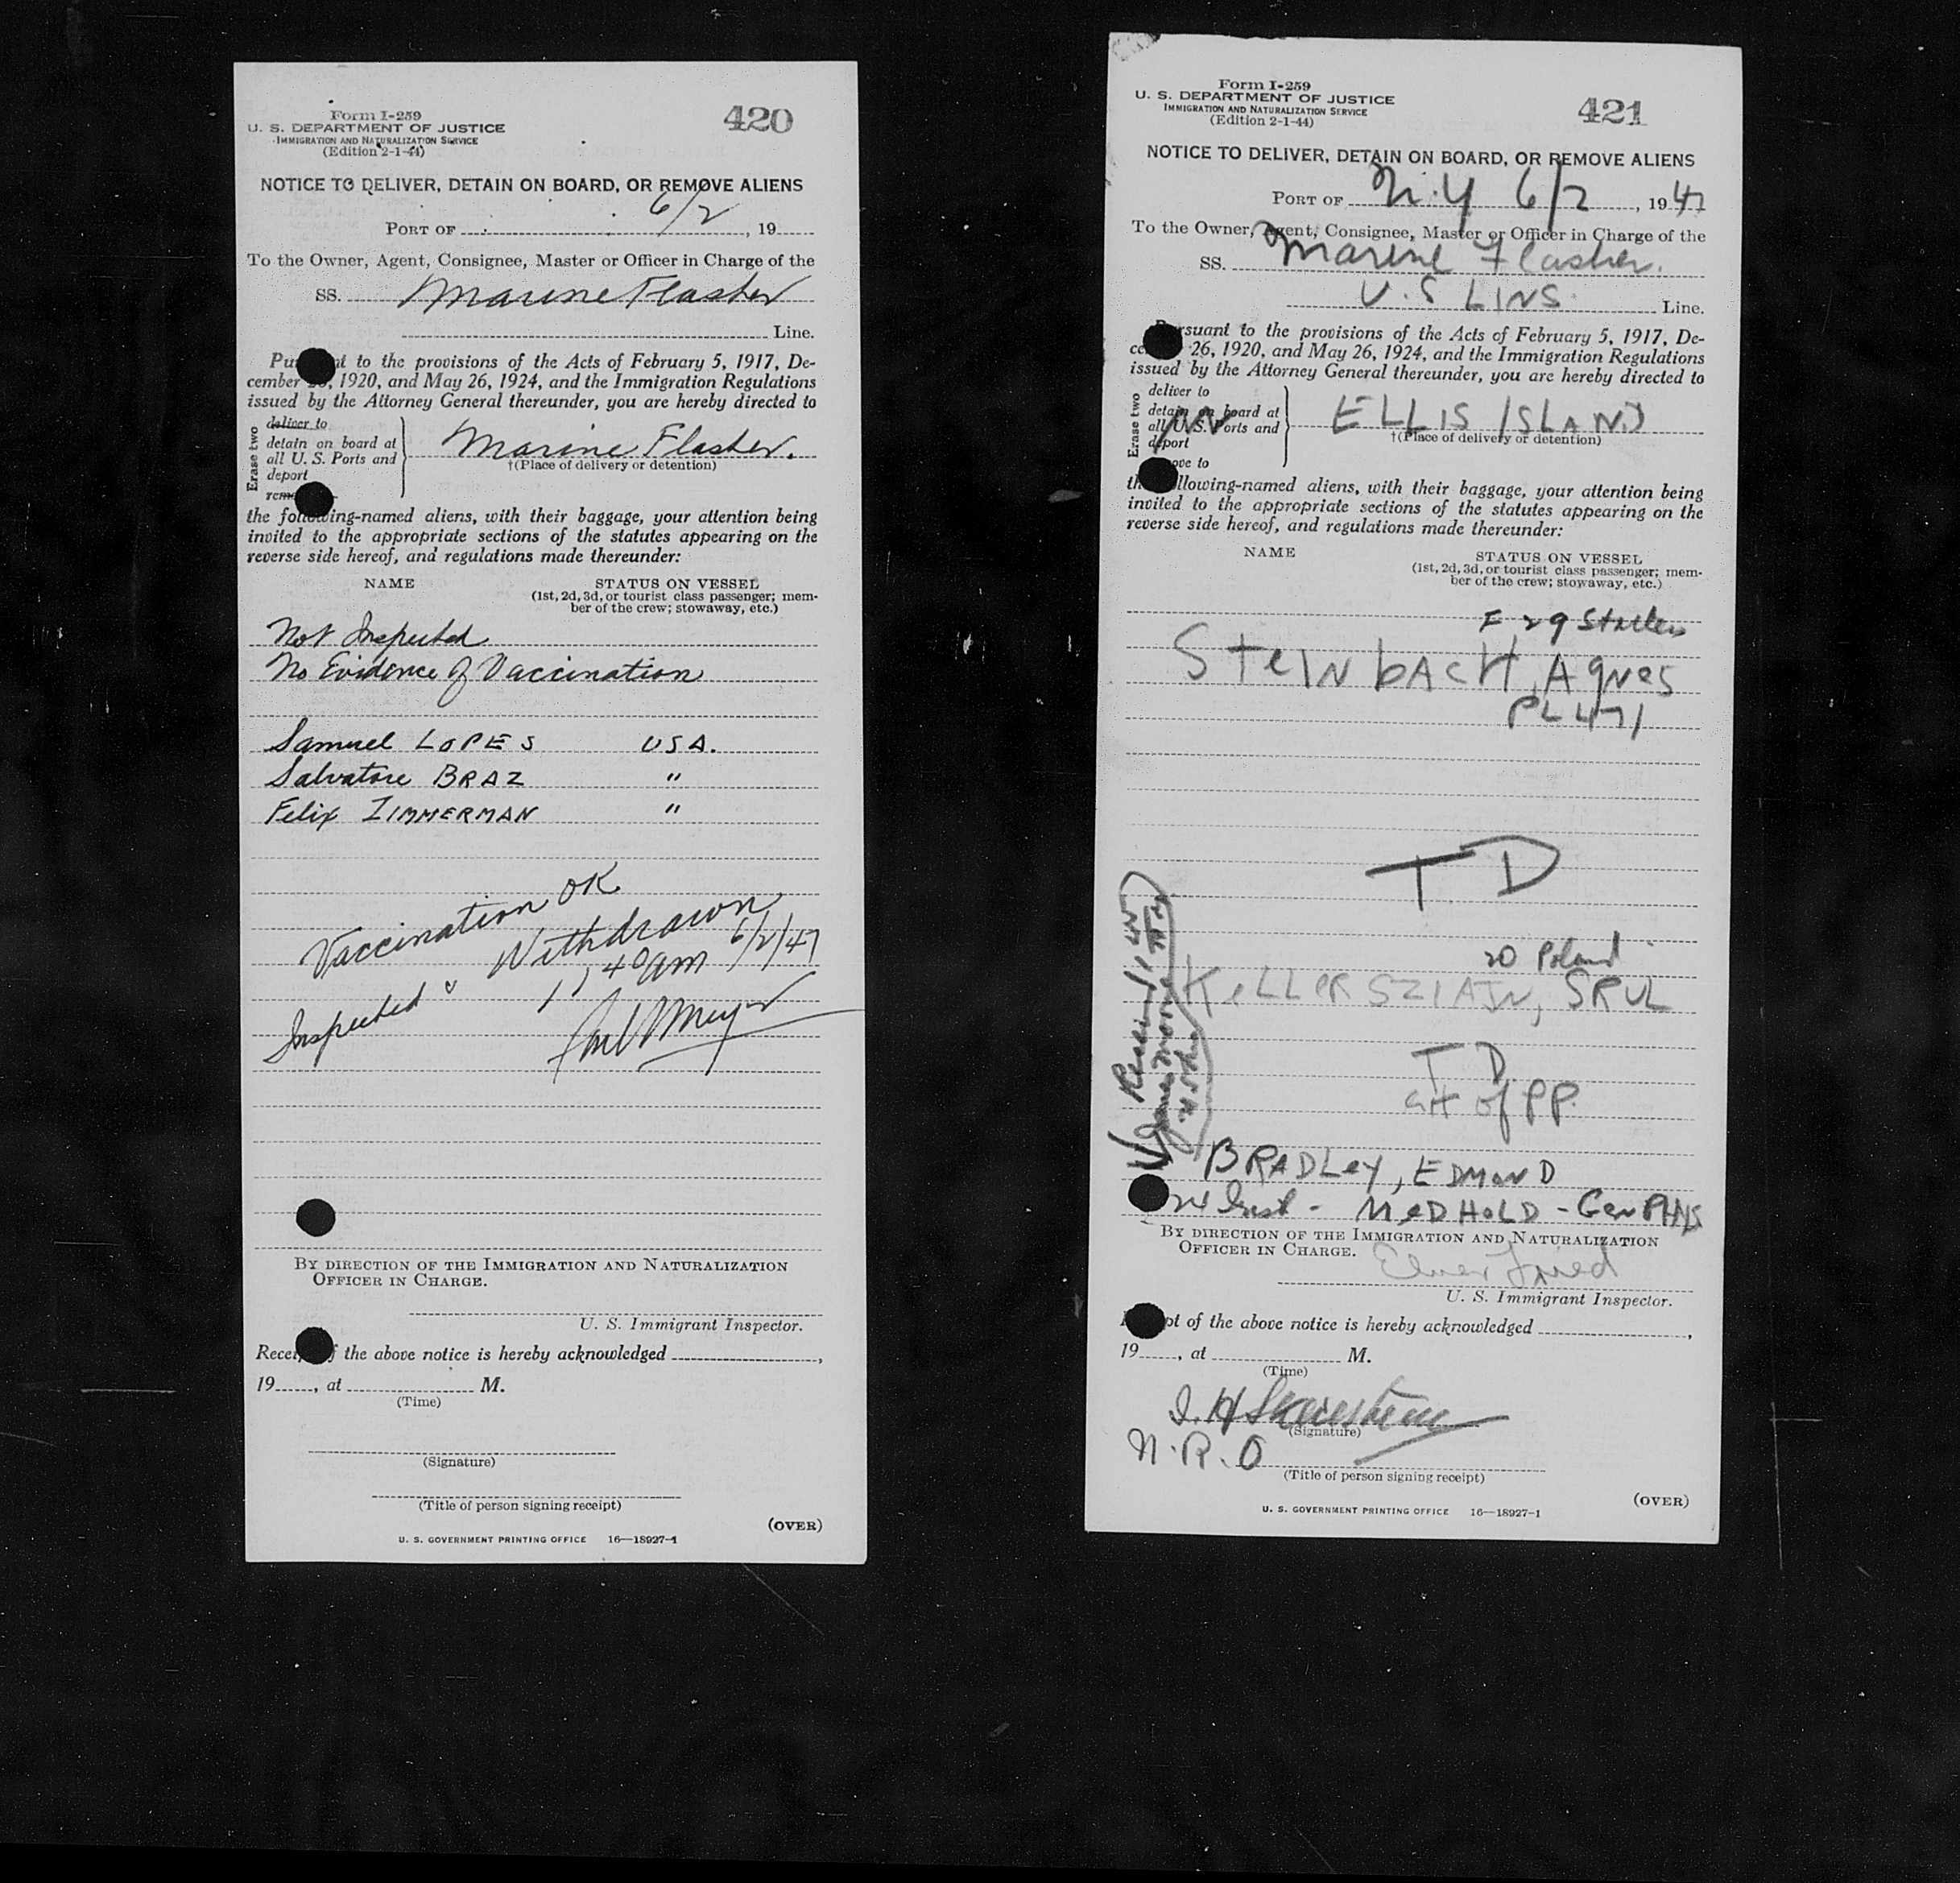 Form I-259
U. S. DEPARTMENT OF JUSTICE
IMMIGRATION AND NATURALIZATION SERVICE
(Edition 2-1-44)
420
NOTICE TO DELIVER, DETAIN ON BOARD, OR REMOVE ALIENS
6/2
PORT OF , 19
To the Owner, Agent, Consignee, Master or Officer in Charge of the
SS. Marine Flasher
Line.
Pursuant to the provisions of the Acts of February 5, 1917, De-
cember 26, 1920, and May 26, 1924, and the Immigration Regulations
issued by the Attorney General thereunder, you are hereby directed to
Erase two
deliver to
detain on board at
all U. S. Ports and
deport
remove to
Marine Flasher.
†(Place of delivery or detention)
the following-named aliens, with their baggage, your attention being
invited to the appropriate sections of the statutes appearing on the
reverse side hereof, and regulations made thereunder:
NAME STATUS ON VESSEL
(1st, 2d, 3d, or tourist class passenger; mem-
ber of the crew; stowaway, etc.)
Not Inspected
No Evidence of Vaccination
Samuel LOPES USA.
Salvatore BRAZ "
Felix ZIMMERMAN "
Vaccination OK
Inspected & Withdrawn
11 40 am 6/2/47
BY DIRECTION OF THE IMMIGRATION AND NATURALIZATION
OFFICER IN CHARGE.
U. S. Immigrant Inspector.
Receipt of the above notice is hereby acknowledged ,
19 , at M.
(Time)
(Signature)
(Title of person signing receipt)
(OVER)
U. S. GOVERNMENT PRINTING OFFICE 16—18927-1
Form I-259
U. S. DEPARTMENT OF JUSTICE
IMMIGRATION AND NATURALIZATION SERVICE
(Edition 2-1-44)
421
NOTICE TO DELIVER, DETAIN ON BOARD, OR REMOVE ALIENS
PORT OF N.Y 6/2 , 1947
To the Owner, Agent, Consignee, Master or Officer in Charge of the
SS. Marine Flasher.
U.S LINS Line.
Pursuant to the provisions of the Acts of February 5, 1917, De-
cember 26, 1920, and May 26, 1924, and the Immigration Regulations
issued by the Attorney General thereunder, you are hereby directed to
Erase two
deliver to
detain on board at
all U. S. Ports and
deport
remove to
ELLIS ISLAND
†(Place of delivery or detention)
the following-named aliens, with their baggage, your attention being
invited to the appropriate sections of the statutes appearing on the
reverse side hereof, and regulations made thereunder:
NAME STATUS ON VESSEL
(1st, 2d, 3d, or tourist class passenger; mem-
ber of the crew; stowaway, etc.)
F 29
SteinbacH, Agnes
PL 471
TD
20 Poland
KeLLERSZTAJN, SRUL
TD
of PP.
BRADLey, EDMonD
MeD HoLD - Gen
BY DIRECTION OF THE IMMIGRATION AND NATURALIZATION
OFFICER IN CHARGE.
Elmer Fried
U. S. Immigrant Inspector.
Receipt of the above notice is hereby acknowledged ,
19 , at M.
(Time)
(Signature)
N.R.O
(Title of person signing receipt)
(OVER)
U. S. GOVERNMENT PRINTING OFFICE 16—18927-1